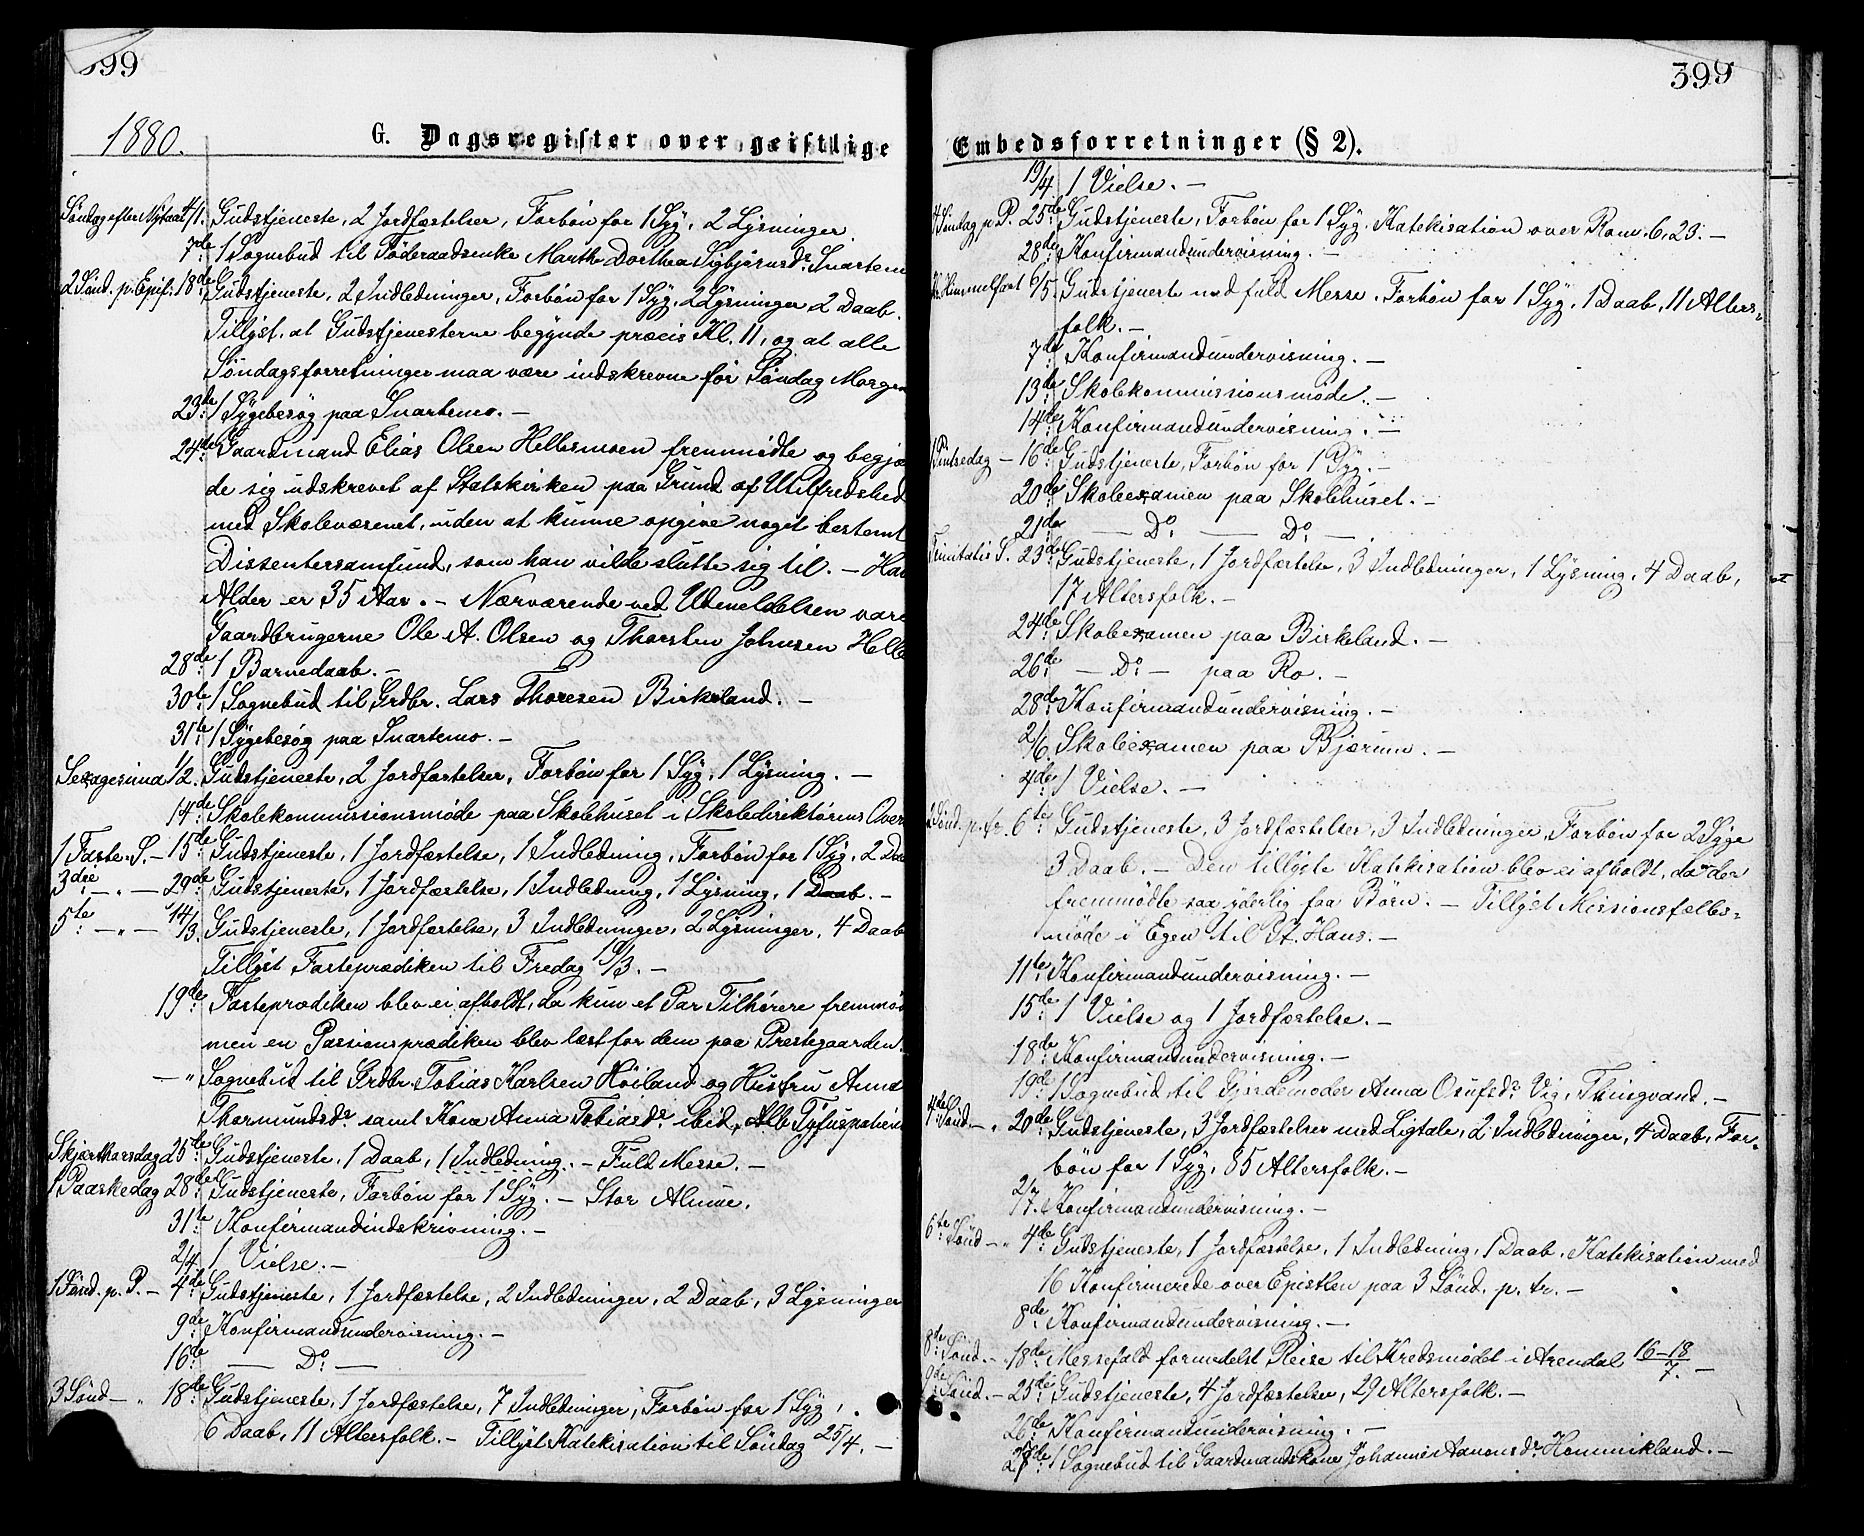 399
1880.
G. Dagsregister over geistlige
Søndag efter Nytaar 4/1. Gudstjeneste, 2 Jordfæstelser, Forbøn for 1 Syg, 2 Lysninger.
7de 1 Sognebud til Føderaadsenke Marthe Dorthea Sigbjørnsdr Snartemo
2 Sønd. p. Epif. 18de Gudstjeneste, 2 Indledninger, Forbøn for 1 Syg, 2 Lysninger 2 Daab.
Tillyst, at Gudstjenesterne begynde præcis Kl. 11, og at alle
Søndagsforretninger maa være indskrevne før Søndag Morgen
23de 1 Sygebesøg paa Snartemo. —
24de Gaardmand Elias Olsen Hellesmoen fremmødte og begjæ
de sig udskrevet af Statskirken paa Grund af Utilfredshed
med Skolevæsenet, uden at kunne opgive noget bestemt
Dissentersamfund, som han vilde slutte sig til. — Han
Alder er 35 Aar. — Nærværende ved Udmeldelsen vare
Gaardbrugerne Ole A. Olsen og Thorsten Johnsen Helle
28de 1 Barnedaab. —
30te 1 Sognebud til Grdbr. Lars Thoresen Birkeland. —
31te 1 Sygebesøg paa Snartemo. —
Sexagesima 1/2. Gudstjeneste, 2 Jordfæstelser, Forbøn for 1 Syg, 1 Lysning. —
14de Skolekommissionsmøde paa Skolehuset i Skoledirektørens Over
1 Faste. S. — 15de Gudstjeneste, 1 Jordfæstelse, 1 Indledning, Forbøn for 1 Syg, 2 Da
3die — " — 29de Gudstjeneste, 1 Jordfæstelse, 1 Indledning, 1 Lysning, 1 Daab. —
5te — " — 14/3. Gudstjeneste, 1 Jordfæstelse, 3 Indledninger, 2 Lysninger, 4 Daab
Tillyst Fasteprædiken til Fredag 19/3. —
19de Fasteprædiken blev ei afholdt, da kun et Par Tilhørere fremmød
men en Passionsprædiken blev læst for dem paa Præstegaarden.
— " Sognebud til Grdbr. Tobias Karlsen Høiland og Hustru Anna
Thormundsdr samt Kone Anna Tobiasdr ibid, Alle Tyfuspatien
Skjærthorsdag 25de Gudstjeneste, 1 Daab, 1 Indledning. — Fuld Messe. —
1 Paaskedag 28de Gudstjeneste, Forbøn for 1 Syg. — Stor Almue.
31te Konfirmandindskrivning. —
2/4 1 Vielse. —
1 Sønd. p. P. — 4de Gudstjeneste, 1 Jordfæstelse, 2 Indledninger, 2 Daab, 3 Lysninger
9de Konfirmandundervisning. —
16de — Do —
3 Sønd — " 18de Gudstjeneste, 1 Jordfæstelse, 7 Indledninger, Forbøn for 1 Syg,
6 Daab, 11 Altersfolk. — Tillyst Katekisation til Søndag 25/4. —
399
Embedsforretninger (§ 2).
19/4 1 Vielse. —
4 Søndag p P. 25de Gudstjeneste, Forbøn for 1 Syg. Katekisation over Rom. 6, 23. —
28de Konfirmandundervisning. —
Kr. Himmelfart 6/5. Gudstjeneste med fuld Messe. Forbøn for 1 Syg. 1 Daab, 11 Alters-
folk. —
7de Konfirmandundervisning. —
13de Skolekommissionsmøde. —
14de Konfirmandundervisning. —
1 Pintsedag — 16de Gudstjeneste, Forbøn for 1 Syg. —
20de Skoleexamen paa Skolehuset. —
21de — Do — Do —.
Trinitatis S. 23de Gudstjeneste, 1 Jordfæstelse, 3 Indledninger, 1 Lysning, 4 Daab,
17 Altersfolk. —
24de Skoleexamen paa Birkeland. —
26de — Do — paa Ro. —
28de Konfirmandundervisning. —
2/6. Skoleexamen paa Bjærum. —
4de 1 Vielse. —
2 Sønd. p. tr. 6te Gudstjeneste, 3 Jordfæstelser, 3 Indledninger, Forbøn for 2 Syge
3 Daab. — Den tillyste Katekisation blev ei afholdt, da der
fremmødte saa særlig faa Børn. — Tillyst Missionsfælles-
møde i Egen til St. Hans. —
11te Konfirmandundervisning. —
15de 1 Vielse og 1 Jordfæstelse. —
18de Konfirmandundervisning. —
19de 1 Sognebud til Gjordemoder Anna Osufsdr Vig, Thingvand. —
4de Sønd — " 20de Gudstjeneste, 3 Jordfæstelser med Ligtale, 2 Indledninger, 4 Daab, For-
bøn for 1 Syg, 85 Altersfolk. —
2/7. Konfirmandundervisning. —
6te Sønd — " 4de Gudstjeneste, 1 Jordfæstelse, 1 Indledning, 1 Daab. Katekisation med
16 Konfirmerede over Epistlen paa 3 Sønd. p. tr. —
8de Konfirmandundervisning. —
8de Sønd. — " 18de Messefald formedelst Reise til Kredsmødet i Arendal 16–18/7. —
9de Sønd. — 25de Gudstjeneste, 4 Jordfæstelser, 29 Altersfolk. —
26de Konfirmandundervisning. —
27de 1 Sognebud til Gaardmandskone Johanne Aanonsdr Hommikland. —